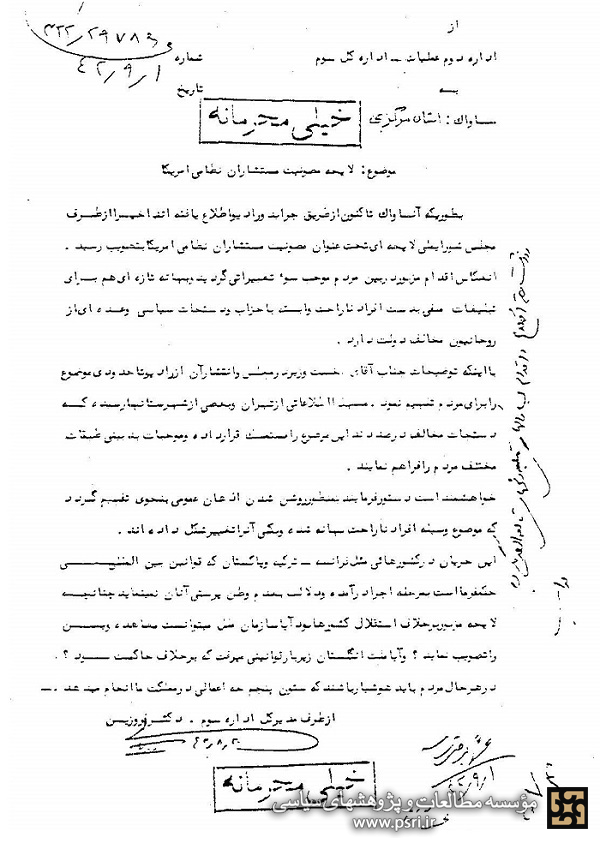 از
اداره دوم عملیات – اداره کل سوم
به
ساواک: استان مرکزی
شماره ۳۲۲/۲۹۷۸۶
تاریخ ۴۲/۹/۱
خیلی محرمانه
موضوع: لایحه مصونیت مستشاران نظامی امریکا
بطوریکه آنساواک تاکنون از طریق جراید و رادیو اطلاع یافته اند اخیرا از طرف
مجلس شورایملی لایحه ای تحت عنوان مصونیت مستشاران نظامی امریکا بتصویب رسید .
انعکاس اقدام مزبور در بین مردم موجب سوء تعبیراتی گردید و بهانه تازه ای هم برای
تبلیغات منفی بدست افراد ناراحت وابسته باحزاب و دستجات سیاسی و عده ای از
روحانیون مخالف دولت داد .
با اینکه توضیحات جناب آقای نخست وزیر در مجلس و انتشار آن از رادیو تا حدودی موضوع
را برای مردم تفهیم نمود . معهذا اطلاعاتی از تهران و بعضی از شهرستانها رسیده که
دستجات مخالف در صددند این موضوع را مستمسک قرار داده و موجبات بدبینی طبقات
مختلف مردم را فراهم نمایند .
خواهشمند است دستور فرمایند بمنظور روشن شدن اذهان عمومی بنحوی تفهیم گردد
که موضوع وسیله افراد ناراحت بهانه شده و بکلی آنرا تغییر شکل داده اند .
این جریان در کشورهائی مثل فرانسه – ترکیه و پاکستان که قوانین بین المللی
حکمفرما است بمرحله اجرا درآمده و دلالت بعدم وطن پرستی آنان نمینماید چنانچه
لایحه مزبور برخلاف استقلال کشورها بود آیا سازمان ملل میتوانست معاهده وین
را تصویب نماید ؟ و آیا ملت انگلستان زیر بار قوانینی میرفت که برخلاف حاکمیت بود ؟ .
در هر حال مردم باید هوشیار باشند که ستون پنجم چه اعمالی در مملکت ما انجام میدهد .
از طرف مدیرکل اداره سوم .
خیلی محرمانه
۴۲/۹/۱
مؤسسه مطالعات و پژوهشهای سیاسی
www.psri.ir